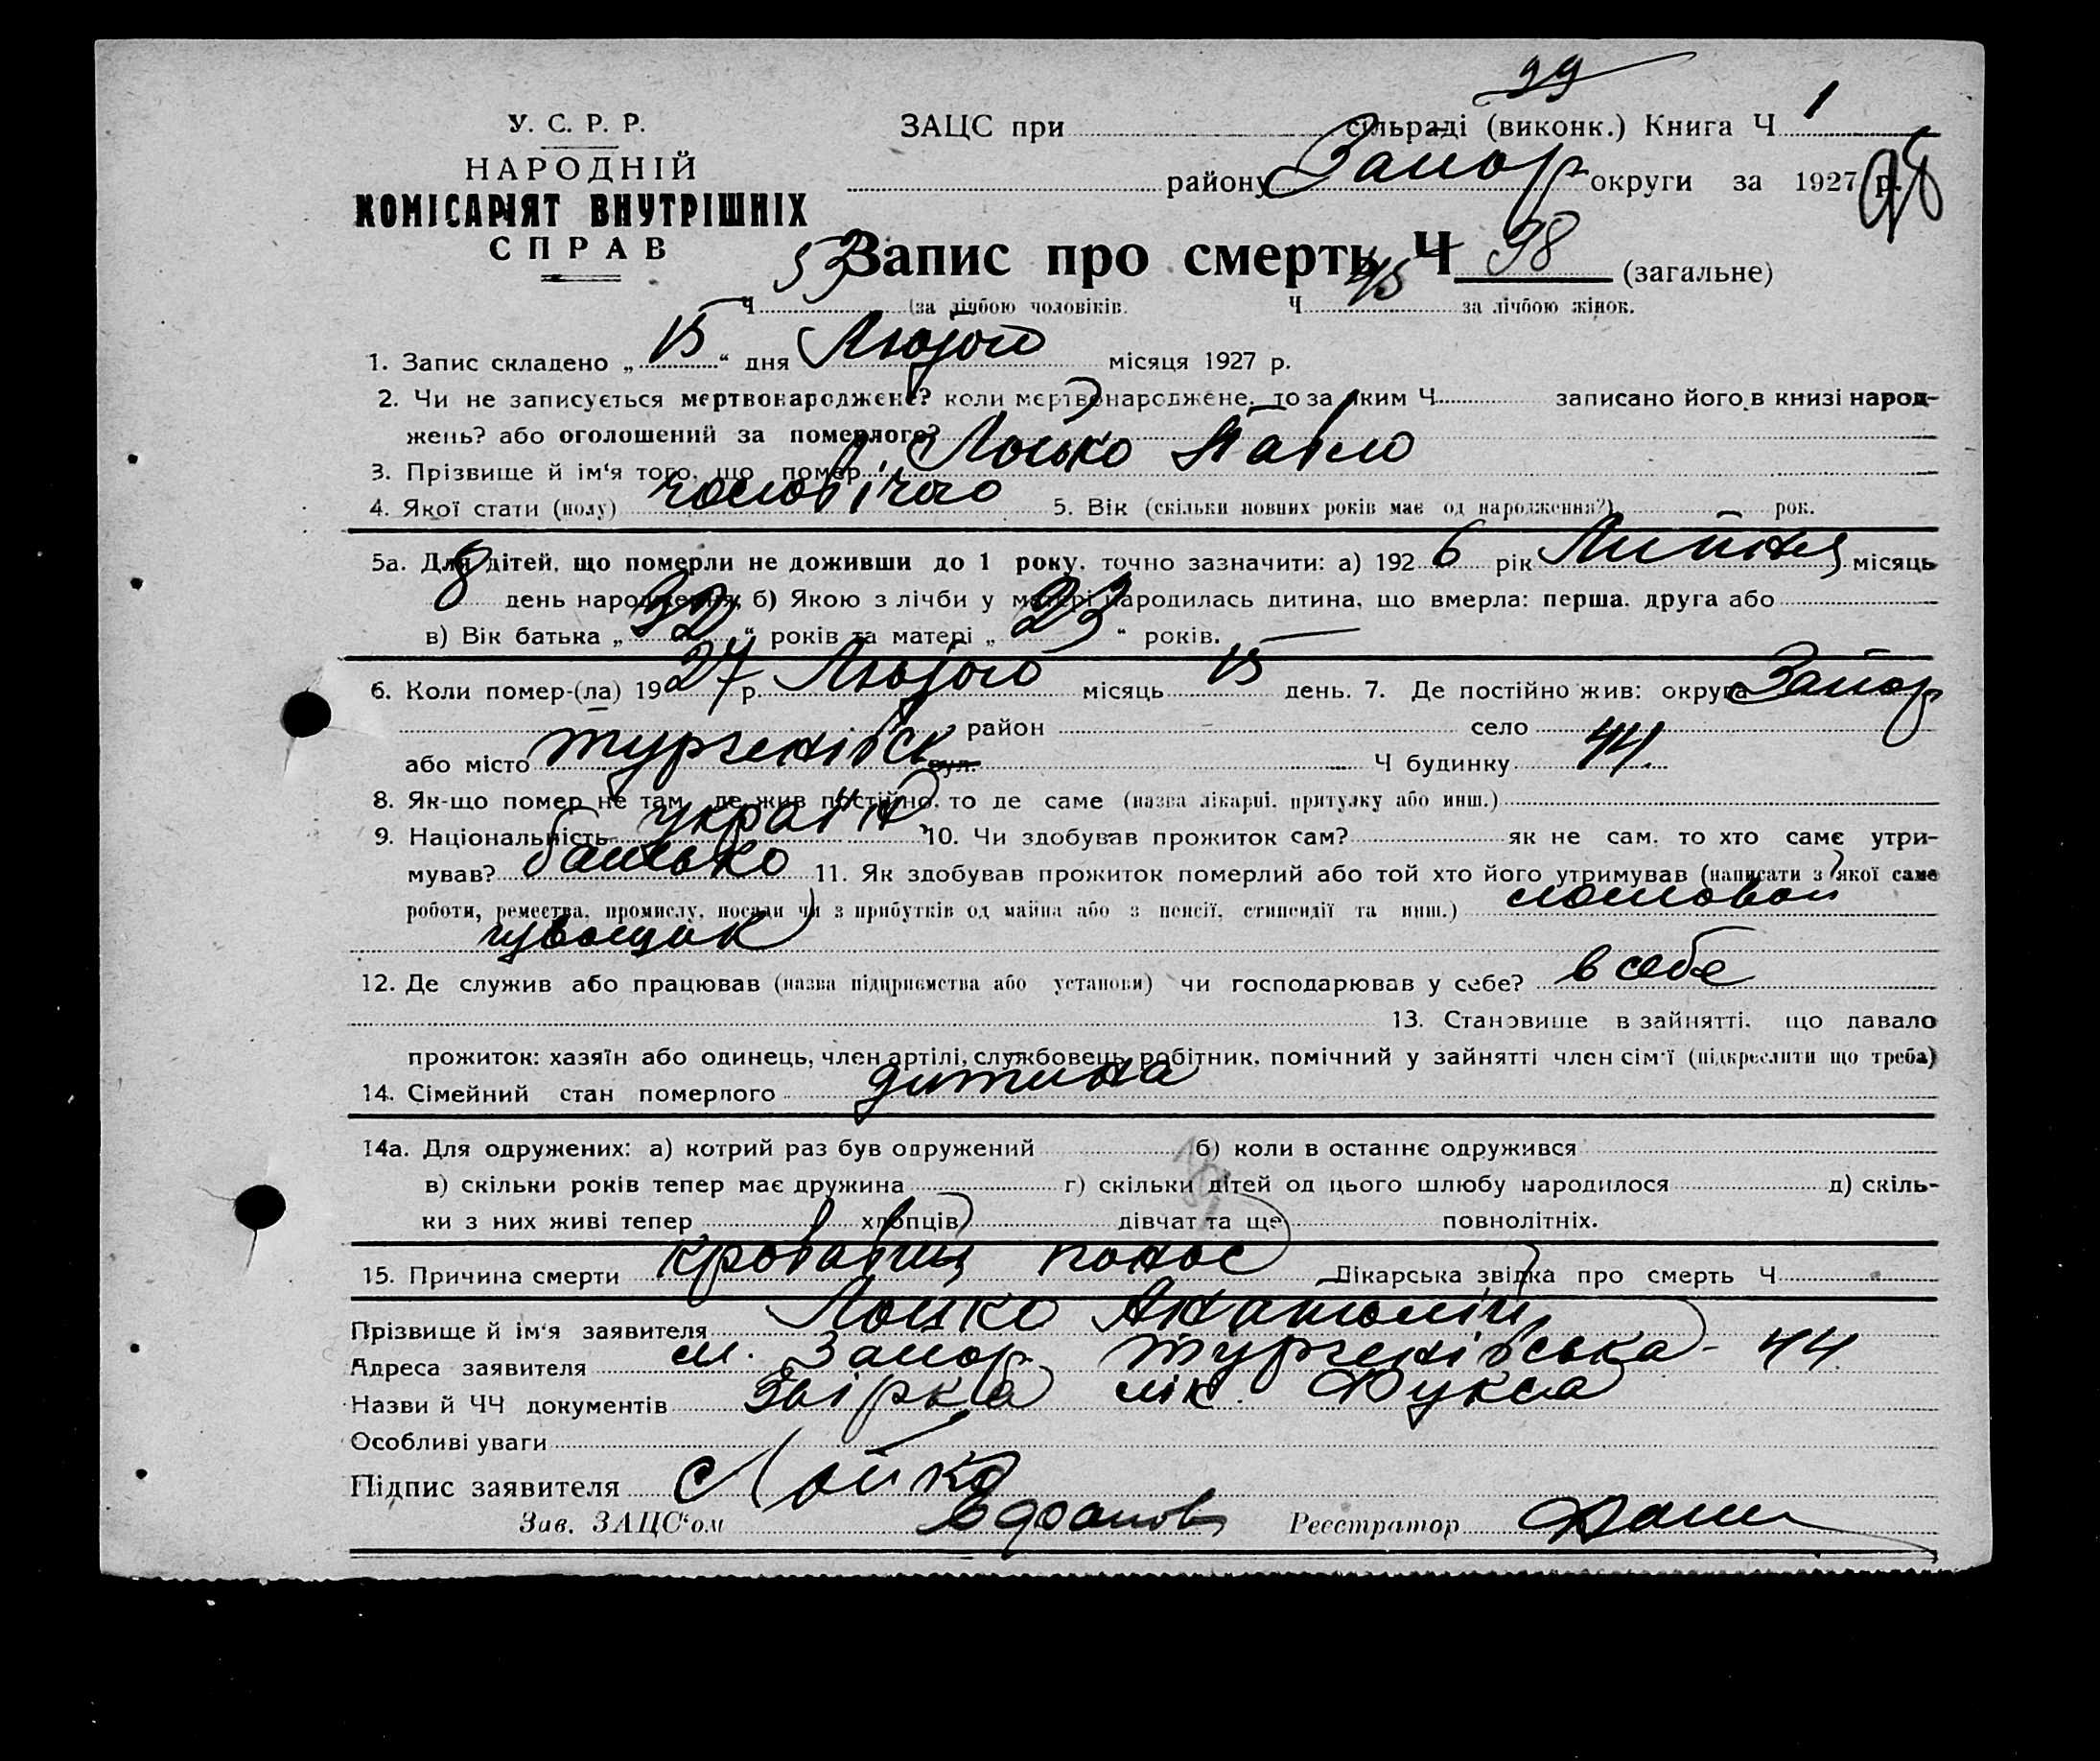 99
У. С. Р. Р.
НАРОДНІЙ
КОМІСАРІЯТ ВНУТРІШНІХ
СПРАВ
ЗАЦС при сільраді (виконк.) Книга Ч 1
району Запор округи за 1927 р. 98
Запис про смерть Ч 98 (загальне)
Ч 53 (за лічбою чоловіків. Ч 45 за лічбою жінок.
1. Запис складено „15“ дня Лютого місяця 1927 р.
2. Чи не записується мертвонароджене? коли мертвонароджене, то за яким Ч записано його в книзі народ-
жень? або оголошений за померлого?
3. Прізвище й ім'я того, що помер Лойко Павло
4. Якої стати (полу) чоловічого 5. Вік (скільки повних років має од народження?) рок.
5а. Для дітей, що померли не доживши до 1 року, точно зазначити: а) 1926 рік Липня місяць
8 день народження; б) Якою з лічби у матері народилась дитина, що вмерла: перша, друга або
в) Вік батька „32“ років та матері „23“ років.
6. Коли помер-(ла) 1927 р. Лютого місяць 15 день. 7. Де постійно жив: округа Запор
район село
або місто Тургенівськ вул. Ч будинку 44.
8. Як-що помер не там, де жив постійно, то де саме (назва лікарні, притулку або инш.)
9. Національність україн 10. Чи здобував прожиток сам? як не сам, то хто саме утри-
мував? батько 11. Як здобував прожиток померлий або той хто його утримував (написати з якої саме
роботи, ремества, промислу, посади чи з прибутків од майна або з пенсії, стипендії та инш.) ломовой
12. Де служив або працював (назва підприємства або установи) чи господарював у себе? в себе
13. Становище в зайнятті, що давало
прожиток: хазяїн або одинець, член артілі, службовець, робітник, помічний у зайнятті член сім'ї (підкреслити що треба)
14. Сімейний стан померлого дитина
14а. Для одружених: а) котрий раз був одружений б) коли в останнє одружився
в) скільки років тепер має дружина г) скільки дітей од цього шлюбу народилося д) скіль-
ки з них живі тепер хлопців дівчат та ще повнолітніх.
15. Причина смерти кровавий понос Лікарська звідка про смерть Ч
Прізвище й ім'я заявителя Лойко Анатолій
Адреса заявителя м. Запор. Тургенівська - 44
Назви й ЧЧ документів лік. Фукса
Особливі уваги
Підпис заявителя Лойко
Зав. ЗАЦС'ом Реєстратор